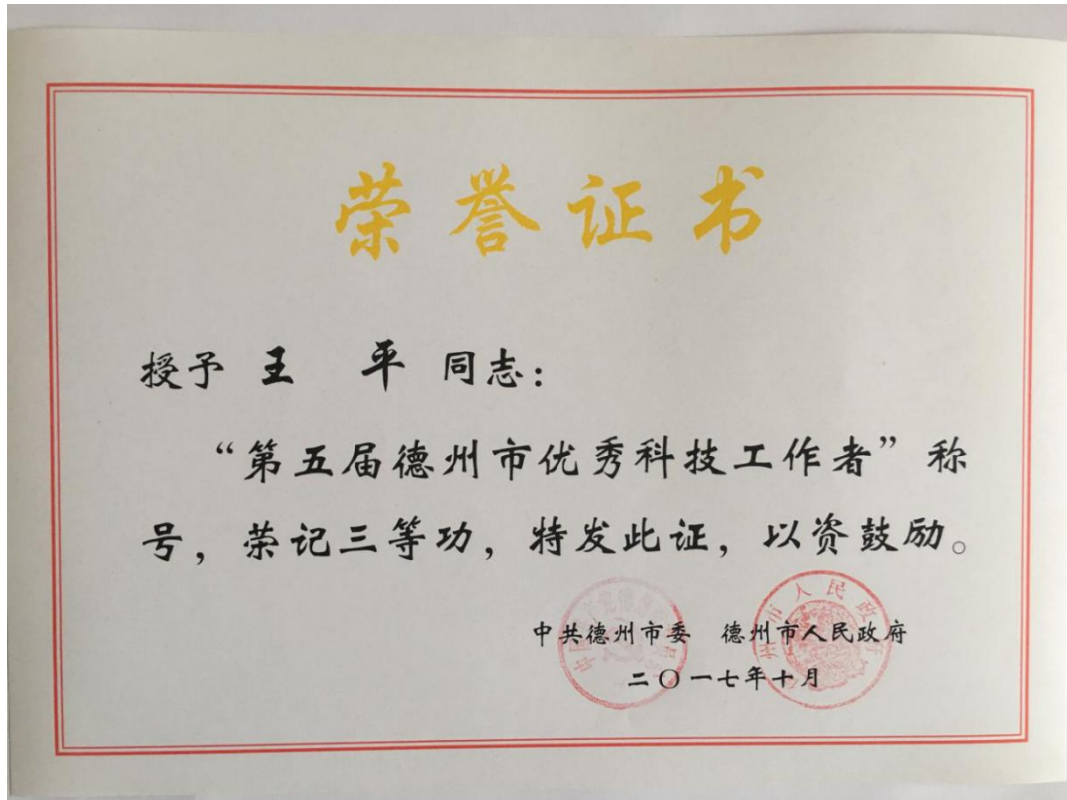 荣誉证书
授予 王 平 同志：
“第五届德州市优秀科技工作者”称
号，荣记三等功，特发此证，以资鼓励。
中共德州市委 德州市人民政府
二〇一七年十月